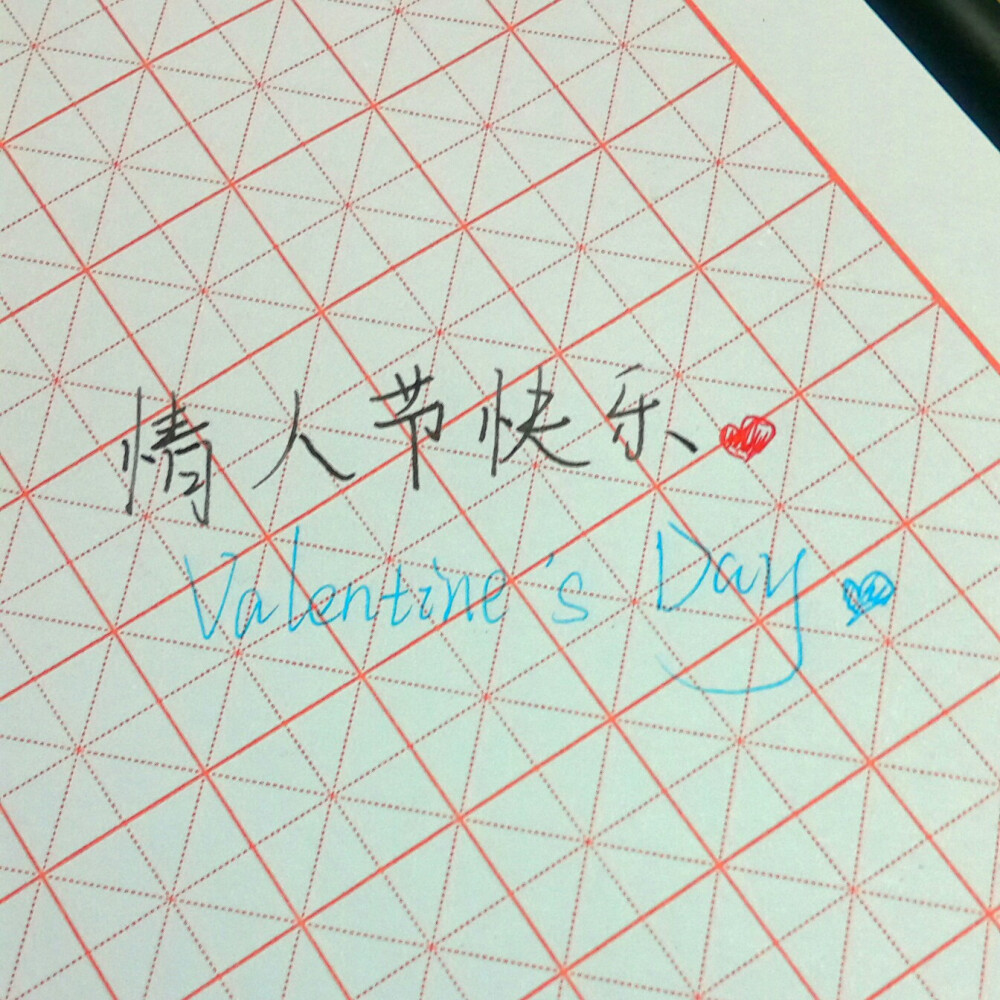 情人节快乐
Valentine's Day